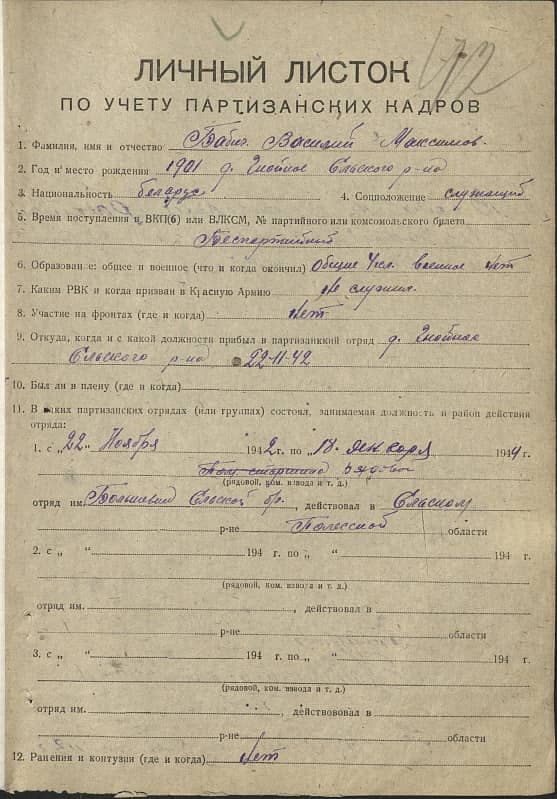 172
ЛИЧНЫЙ ЛИСТОК
ПО УЧЕТУ ПАРТИЗАНСКИХ КАДРОВ
1. Фамилия, имя и отчество Бабич Василий Максимов.
2. Год и место рождения 1901 д. Гнойное Ельского р-на
3. Национальность беларус 4. Соцположение служащий
5. Время поступления в ВКП(б) или ВЛКСМ, № партийного или комсомольского билета
Беспартийный
6. Образование: общее и военное (что и когда окончил) Общее 4 кл. военное нет
7. Каким РВК и когда призван в Красную Армию не служил.
8. Участие на фронтах (где и когда) нет
9. Откуда, когда и с какой должности прибыл в партизанский отряд д. Гнойное
Ельского р-на 22-11-42
10. Был ли в плену (где и когда)
11. В каких партизанских отрядах (или группах) состоял, занимаемая должность и район действия
отряда:
1. с „22“ Ноября 1942 г. по 18 1944 г.
Пом. старшина рядовой
(рядовой, ком. взвода и т. д.)
отряд им. Большевик Ельской бр., действовал в Ельском
р-не Полесской области
2. с „ “ 194 г. по „ “ 194 г.
(рядовой, ком. взвода и т. д.)
отряд им. , действовал в
р-не области
3. с „ “ 194 г. по „ “ 194 г.
(рядовой, ком. взвода и т. д.)
отряд им. , действововал в
р-не области
12. Ранения и контузии (где и когда) нет